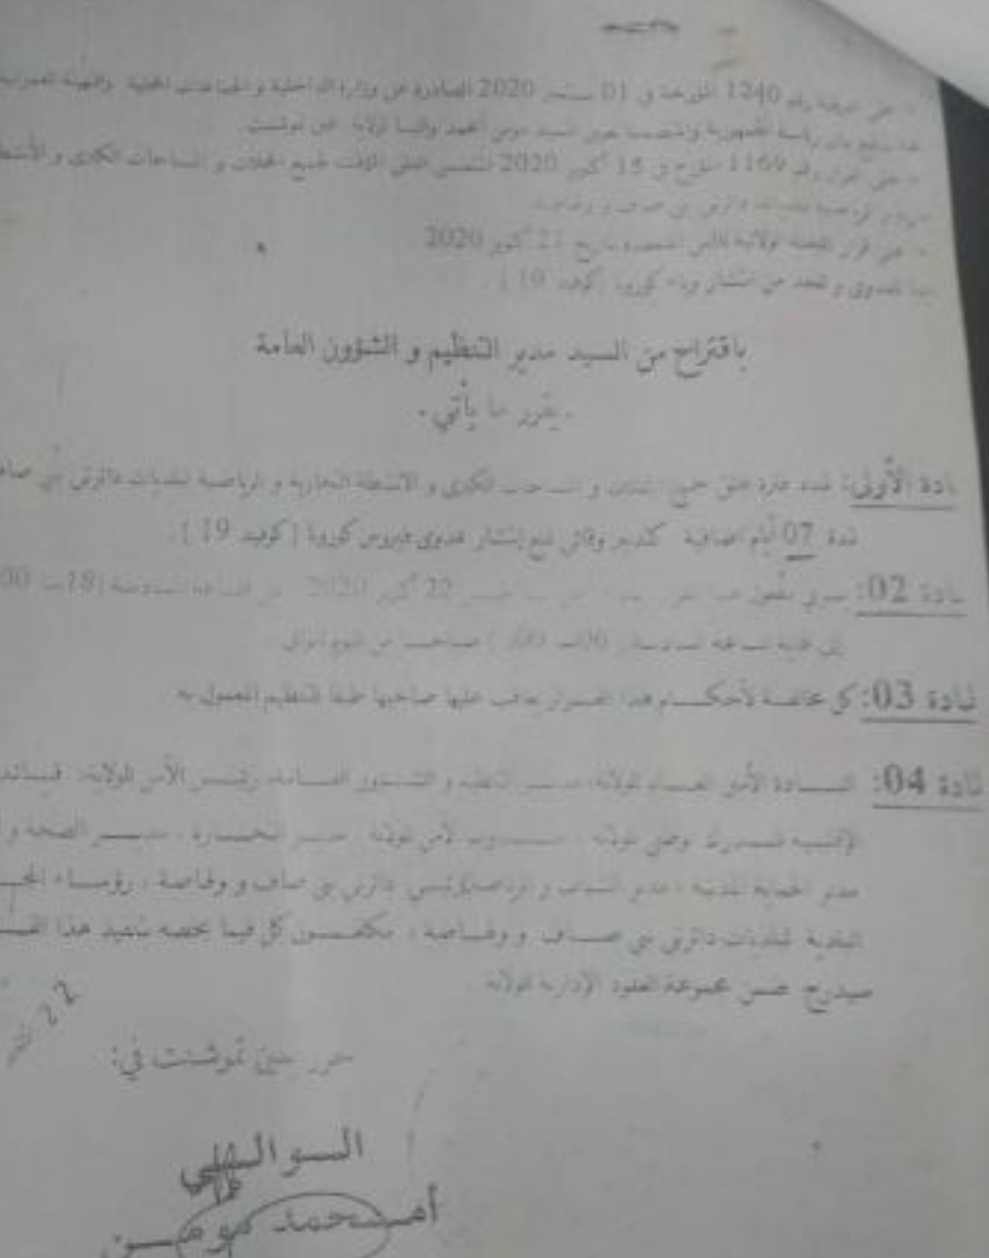 رقم 1240 المؤرخة في 01 سبتمبر 2020 الصادرة عن وزارة الداخلية و الجماعات المحلية والتهيئة العمرانية
رئاسة الجمهورية والمتضمنة تعيين السيد مومن أمحمد واليا لولاية عين تموشنت
- على القرار رقم 1169 المؤرخ في 15 أكتوبر 2020 المتضمن الغلق المؤقت لجميع المحلات و المساحات الكبرى و
لبلديات دائرتي بني صاف و ولهاصة
- على قرار اللجنة الولائية بتاريخ 21 أكتوبر 2020
العدوى و الحد من انتشار وباء كورونا (كوفيد 19)
باقتراح من السيد مدير التنظيم و الشؤون العامة
- يقرر ما يأتي -
ادة الأولى: تمدد فترة غلق جميع المحلات و المساحات الكبرى و الأنشطة التجارية و الرياضية لبلديات دائرتي بني صاف
لمدة 07 أيام إضافية كتدبير وقائي لمنع إنتشار عدوى فيروس كورونا ( كوفيد 19 ).
ادة 02: يسري مفعول هذا 22 أكتوبر 2020 من الساعة السادسة (18سا 00
إلى غاية الساعة السادسة (06سا 00د ) صباحا من اليوم الموالي
لمادة 03: كل مخالفة لأحكام هذا القرار يعاقب عليها صاحبها طبقا للتنظيم المعمول به
لمادة 04: السادة الأمين العام للولاية، مدير التنظيم و الشؤون العامة، رئيس الأمن للولاية، قائد
الإقليمية للدرك الوطني للولاية ، لأمن الولاية ، مدير التجارة ، مدير الصحة و
مدير الحماية المدنية ، مدير الشباب و الرياضة، رئيسي دائرتي بني صاف و ولهاصة ، رؤساء
البلدية لبلديات دائرتي بني صاف و ولهاصة ، مكلفون كل فيما يخصه بتنفيذ هذا
سيدرج ضمن مجموعة العقود الإدارية للولاية
22
حرر بعين تموشنت في:
الوالي
أمحمد مومن